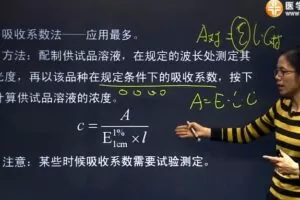 医学
吸收系数法——应用最多。
A对=E·l·C对
方法：配制供试品溶液，在规定的波长处测定其
光度，再以该品种在规定条件下的吸收系数，按下
计算供试品溶液的浓度。
A=E·C·l
c = A / (E1% 1cm × l)
注意：某些时候吸收系数需要试验测定。